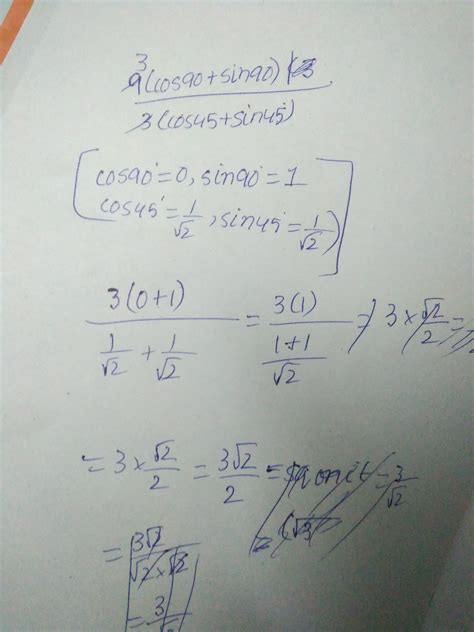 3
9(cos90+sin90)
3(cos45+sin45)
[cos90°=0, sin90=1
cos45°=1/√2, sin45=1/√2)]
3(0+1) / (1/√2 + 1/√2) = 3(1) / ((1+1)/√2) = 3×√2/2 =
=3×√2/2 = 3√2/2 = = 3/√2
= 3√2/√2×√2
= 3/√2